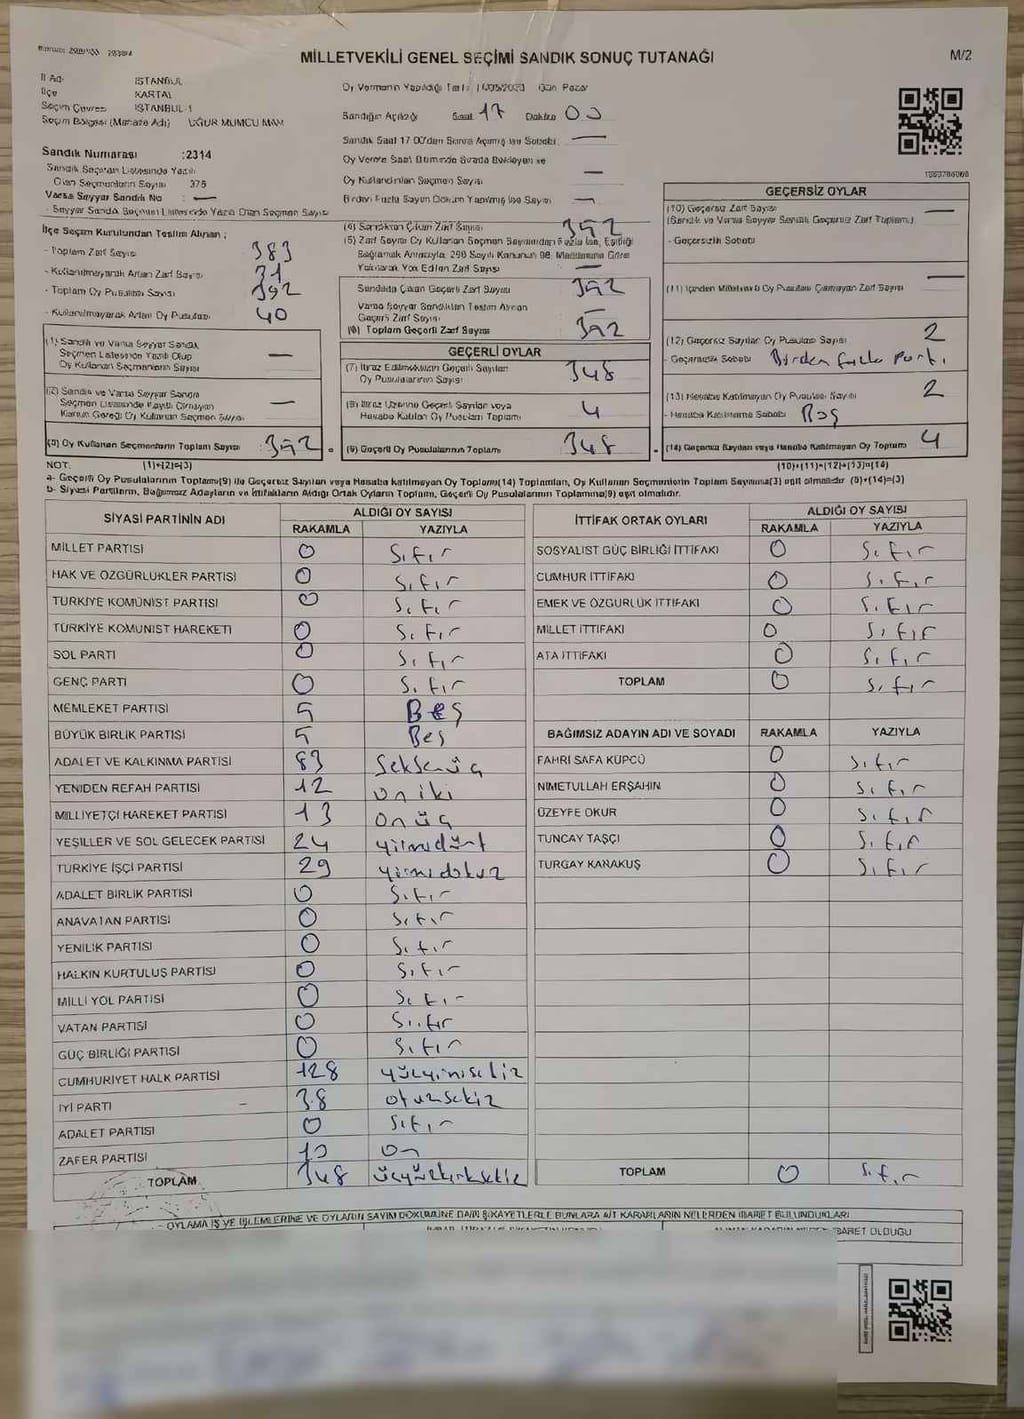 MİLLETVEKİLİ GENEL SEÇİMİ SANDIK SONUÇ TUTANAĞI
M/2
İl Adı İSTANBUL
İlçe KARTAL
Seçim Çevresi İSTANBUL-1
Seçim Bölgesi (Mahalle Adı) UĞUR MUMCU MAH
Oy Vermenin Yapıldığı Tarih Gün Pazar
Sandığın Açılışı Saat 17 Dakika 00
Sandık Numarası :2314
Sandık Seçmen Listesinde Yazılı
Olan Seçmenlerin Sayısı 375
Varsa Seyyar Sandık No : —
Sandık Saat 17.00'den Sonra Açılmış ise Sebebi —
Oy Verme Saati Bitiminde Sırada Bekleyen ve
Oy Kullandırılan Seçmen Sayısı —
Birden Fazla Sayım Döküm Yapılmış ise Sayısı —
- Seyyar Sandık Seçmen Listesinde Yazılı Olan Seçmen Sayısı
İlçe Seçim Kurulundan Teslim Alınan ;
- Toplam Zarf Sayısı 383
- Kullanılmayarak Artan Zarf Sayısı 31
- Toplam Oy Pusulası Sayısı 392
- Kullanılmayarak Artan Oy Pusulası 40
(1) Sandık ve Varsa Seyyar Sandık
Seçmen Listesinde Yazılı Olup
Oy Kullanan Seçmenlerin Sayısı —
(2) Sandık ve Varsa Seyyar Sandık
Seçmen Listesinde Kayıtlı Olmayan
Kanun Gereği Oy Kullanan Seçmen Sayısı —
(3) Oy Kullanan Seçmenlerin Toplam Sayısı 352
(4) Sandıktan Çıkan Zarf Sayısı 352
(5) Zarf Sayısı Oy Kullanan Seçmen Sayısından Fazla ise, Eşitliği
Sağlamak Amacıyla, 298 Sayılı Kanunun 98. Maddesine Göre
Yakılarak Yok Edilen Zarf Sayısı —
Sandıkta Çıkan Geçerli Zarf Sayısı 352
Varsa Seyyar Sandıktan Teslim Alınan
Geçerli Zarf Sayısı
(6) Toplam Geçerli Zarf Sayısı 352
GEÇERLİ OYLAR
(7) İtiraz Edilmeksizin Geçerli Sayılan
Oy Pusulalarının Sayısı 348
(8) İtiraz Üzerine Geçerli Sayılan veya
Hesaba Katılan Oy Pusulası Toplamı 4
(9) Geçerli Oy Pusulalarının Toplamı 348
GEÇERSİZ OYLAR
(10) Geçersiz Zarf Sayısı —
(Sandık ve Varsa Seyyar Sandık Geçersiz Zarf Toplamı)
- Geçersizlik Sebebi
(11) İçinden Milletvekili Oy Pusulası Çıkmayan Zarf Sayısı —
(12) Geçersiz Sayılan Oy Pusulası Sayısı 2
- Geçersizlik Sebebi Birden fazla parti
(13) Hesaba Katılmayan Oy Pusulası Sayısı 2
- Hesaba Katılmama Sebebi Boş
(14) Geçersiz Sayılan veya Hesaba Katılmayan Oy Toplamı 4
NOT: (1)+(2)=(3) (10)+(11)+(12)+(13)=(14)
a- Geçerli Oy Pusulalarının Toplamı(9) ile Geçersiz Sayılan veya Hesaba katılmayan Oy Toplamı(14) Toplamları, Oy Kullanan Seçmenlerin Toplam Sayısına(3) eşit olmalıdır (9)+(14)=(3)
b- Siyasi Partilerin, Bağımsız Adayların ve İttifakların Aldığı Ortak Oyların Toplamı, Geçerli Oy Pusulalarının Toplamına(9) eşit olmalıdır.
SİYASİ PARTİNİN ADI ALDIĞI OY SAYISI RAKAMLA YAZIYLA
MİLLET PARTİSİ 0 Sıfır
HAK VE ÖZGÜRLÜKLER PARTİSİ 0 Sıfır
TÜRKİYE KOMÜNİST PARTİSİ 0 Sıfır
TÜRKİYE KOMÜNİST HAREKETİ 0 Sıfır
SOL PARTİ 0 Sıfır
GENÇ PARTİ 0 Sıfır
MEMLEKET PARTİSİ 5 Beş
BÜYÜK BİRLİK PARTİSİ 5 Beş
ADALET VE KALKINMA PARTİSİ 83 Seksenüç
YENİDEN REFAH PARTİSİ 12 oniki
MİLLİYETÇİ HAREKET PARTİSİ 13 onüç
YEŞİLLER VE SOL GELECEK PARTİSİ 24 yirmidört
TÜRKİYE İŞÇİ PARTİSİ 29 yirmidokuz
ADALET BİRLİK PARTİSİ 0 Sıfır
ANAVATAN PARTİSİ 0 Sıfır
YENİLİK PARTİSİ 0 Sıfır
HALKIN KURTULUŞ PARTİSİ 0 Sıfır
MİLLİ YOL PARTİSİ 0 Sıfır
VATAN PARTİSİ 0 Sıfır
GÜÇ BİRLİĞİ PARTİSİ 0 Sıfır
CUMHURİYET HALK PARTİSİ 128 yüzyirmisekiz
İYİ PARTİ 38 otuzsekiz
ADALET PARTİSİ 0 Sıfır
ZAFER PARTİSİ 10 On
TOPLAM 348 üçyüzkırksekiz
İTTİFAK ORTAK OYLARI ALDIĞI OY SAYISI RAKAMLA YAZIYLA
SOSYALİST GÜÇ BİRLİĞİ İTTİFAKI 0 Sıfır
CUMHUR İTTİFAKI 0 Sıfır
EMEK VE ÖZGÜRLÜK İTTİFAKI 0 Sıfır
MİLLET İTTİFAKI 0 Sıfır
ATA İTTİFAKI 0 Sıfır
TOPLAM 0 Sıfır
BAĞIMSIZ ADAYIN ADI VE SOYADI RAKAMLA YAZIYLA
FAHRİ SAFA KÜPCÜ 0 Sıfır
NİMETULLAH ERŞAHİN 0 Sıfır
ÜZEYFE OKUR 0 Sıfır
TUNCAY TAŞÇI 0 Sıfır
TURGAY KARAKUŞ 0 Sıfır
TOPLAM 0 Sıfır
- OYLAMA İŞ VE İŞLEMLERİNE VE OYLARIN SAYIM DÖKÜMÜNE DAİR ŞİKAYETLERLE BUNLARA AİT KARARLARIN NELERDEN İBARET BULUNDUKLARI
İBARET OLDUĞU